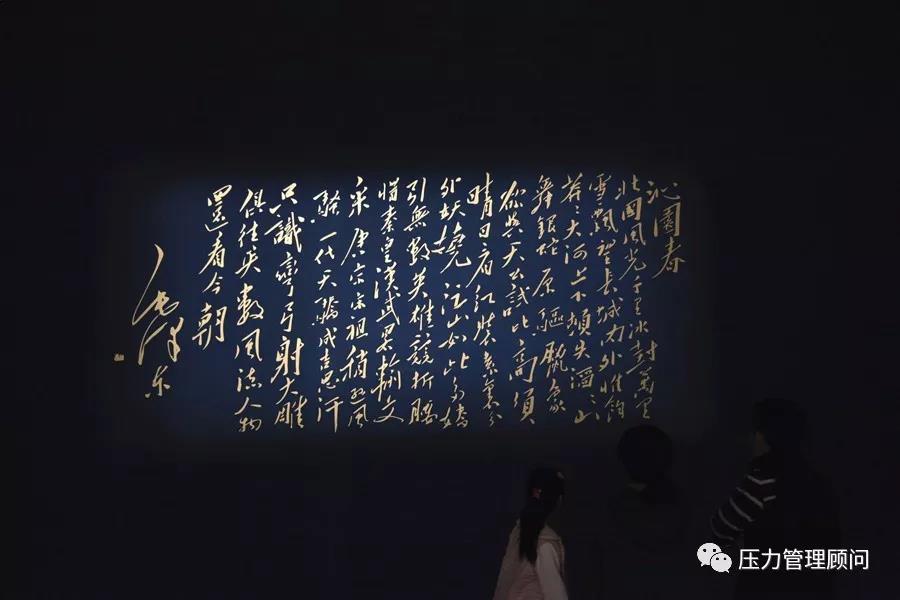 沁園春
北國風光千里冰封萬里
雪飄望長城内外惟餘
莽〻大河上下頓失滔〻山
舞銀蛇原驅臘象
欲與天公試比高須
晴日看紅裝素裹分
外妖嬈江山如此多嬌
引無數英雄競折腰
惜秦皇漢武畧輸文
采唐宗宋祖稍遜風
騷一代天驕成吉思汗
只識彎弓射大雕
俱往矣數風流人物
還看今朝
毛澤東
压力管理顾问